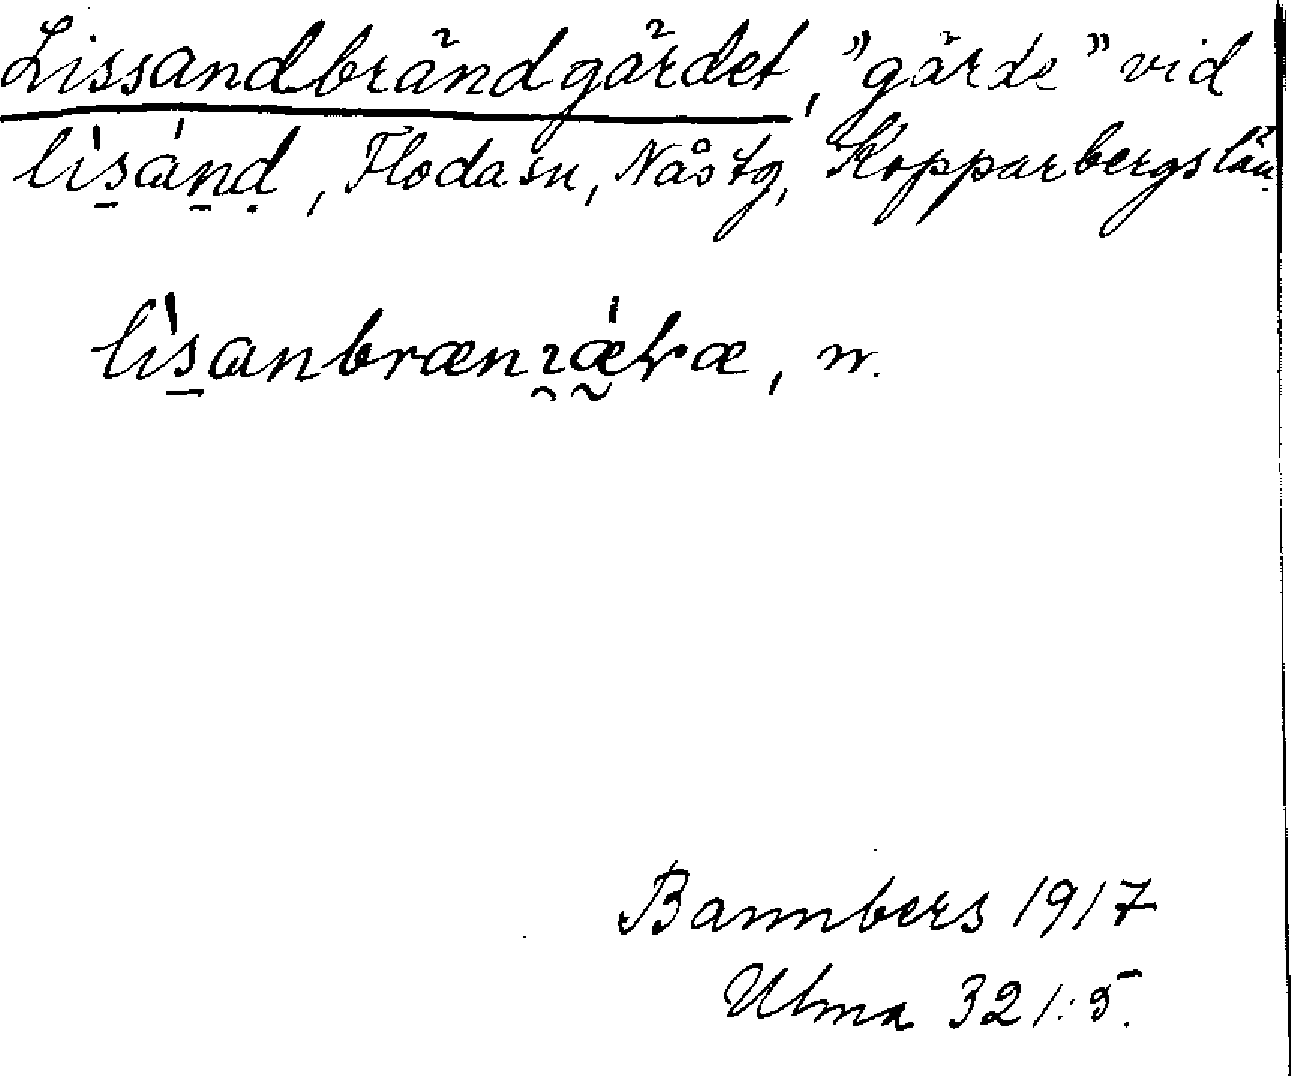 Lissandbrändgärdet, "gärde" vid
lìsánd, Floda sn, Nås tg, Kopparbergs län
n.
Bannbers 1917
Ulma 321:5.